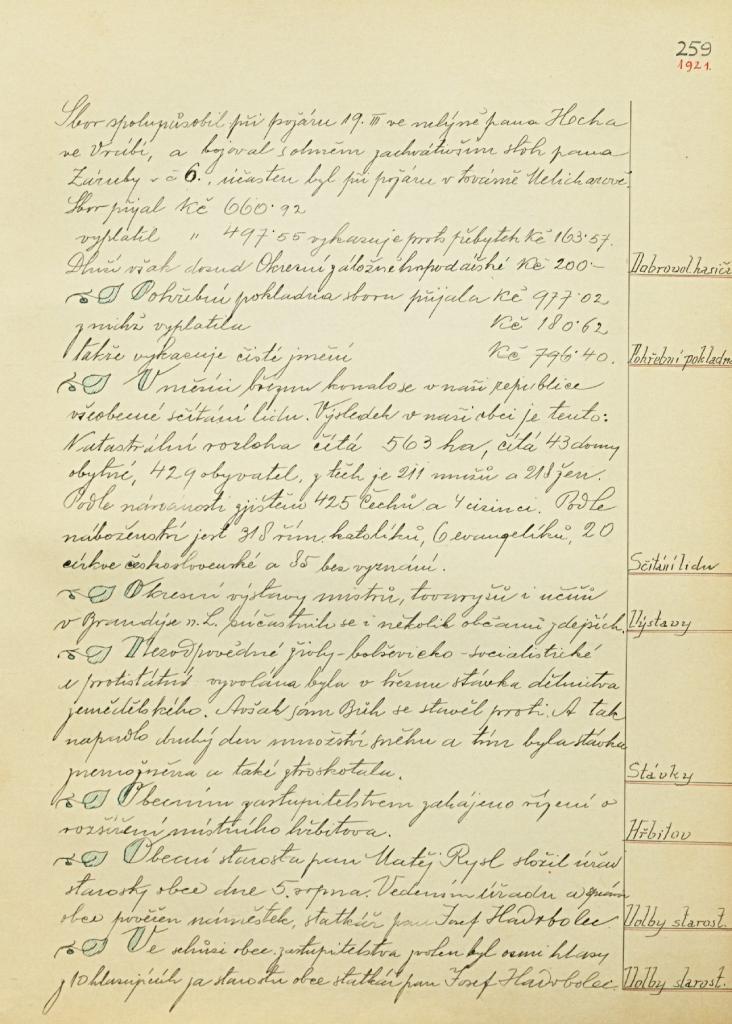 259
1921.
Sbor spolupůsobil při požáru 19. III ve mlýně pana Hocha
ve Vrábí, a bojoval s ohněm zachvátivším stoh pana
Záruby v č 6., účasten byl při požáru v továrně Melicharově.
Sbor přijal Kč 660·92
vyplatil " 497·55 vykazuje proto přebytek Kč 163·57.
Dluží však dosud Okresní záložně hospodářské Kč 200·–
Dobrovol. hasiči
Pohřební pokladna sboru přijala Kč 977·02
z nichž vyplatila Kč 180·62
takže vykazuje čisté jmění Kč 796·40.
Pohřební pokladna
V měsíci březnu konalo se v naší republice
všeobecné sčítání lidu. Výsledek v naší obci je tento:
Katastrální rozloha čítá 563 ha, čítá 43 domy
obytné, 429 obyvatel, z těch je 211 mužů a 218 žen.
Podle národnosti zjištěno 425 Čechů a 4 cizinci. Podle
náboženství jest 318 řím. katolíků, 6 evangelíků, 20
církve československé a 85 bez vyznání.
Sčítání lidu
Okresní výstavy mistrů, tovaryšů i učňů
v Brandýse n. L. súčastnili se i několik občanů zdejších.
Výstavy
Nezodpovědné živly - bolševicko - socialistické
a protistátní vyvolána byla v březnu stávka dělnictva
zemědělského. Avšak sám Bůh se stavěl proti. A tak
napadlo druhý den množství sněhu a tím byla stávka
znemožněna a také ztroskotala.
Stávky
Obecním zastupitelstvem zahájeno řízení o
rozšíření místního hřbitova.
Hřbitov
Obecní starosta pan Matěj Rysl složil úřad
starosty obce dne 5. srpna. Vedením úřadu a správou
obce pověřen náměstek, statkář pan Josef Hadrbolec
Volby starost.
Ve schůzi obec. zastupitelstva zvolen byl osmi hlasy
z 10 hlasujících za starostu obce statkář pan Josef Hadrbolec.
Volby starost.